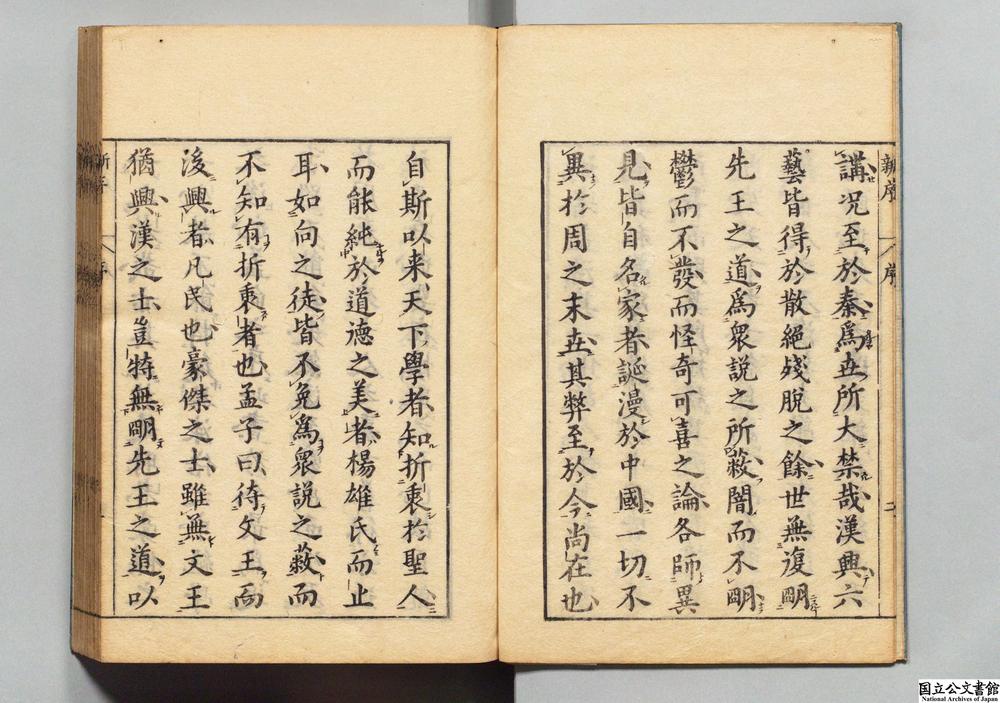 新序
序
二
講况至於秦為世所大禁哉漢興六
藝皆得於散絕殘脫之餘世無復明
先王之道為衆說之所蔽闇而不明
鬱而不發而怪奇可喜之論各師異
見皆自名家者誕漫於中國一切不
異於周之末世其弊至於今尚在也
自斯以来天下學者知折衷於聖人
而能純於道德之美者楊雄氏而止
耳如向之徒皆不免為衆說之蔽而
不知有折衷者也孟子曰待文王而
後興者凡民也豪傑之士雖無文王
猶興漢之士豈特無明先王之道以
新序
序
国立公文書館
National Archives of Japan